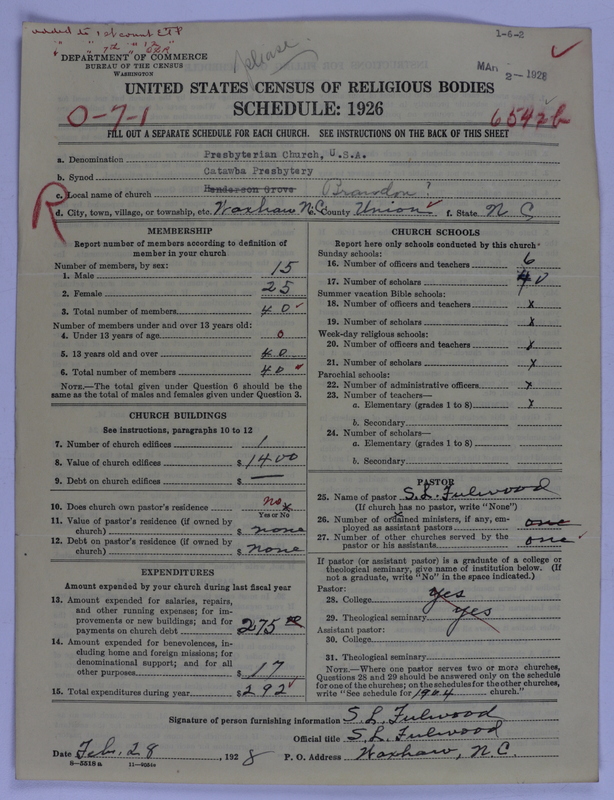 added to 1st count ETP
" " 7th " "
DEPARTMENT OF COMMERCE
BUREAU OF THE CENSUS
WASHINGTON
please
1-6-2
MAR 2-1928
UNITED STATES CENSUS OF RELIGIOUS BODIES
SCHEDULE: 1926
0-7-1
6542b
FILL OUT A SEPARATE SCHEDULE FOR EACH CHURCH. SEE INSTRUCTIONS ON THE BACK OF THIS SHEET
R
a. Denomination Presbyterian Church, U.S.A.
b. Synod Catawba Presbytery
c. Local name of church Henderson Grove Brandon?
d. City, town, village, or township, etc. Waxhaw N.C. County Union f. State N C
MEMBERSHIP
Report number of members according to definition of
member in your church
Number of members, by sex:
1. Male 15
2. Female 25
3. Total number of members 40
Number of members under and over 13 years old:
4. Under 13 years of age 0
5. 13 years old and over 40
6. Total number of members 40
NOTE.—The total given under Question 6 should be
same as the total of males and females given under Question 3.
CHURCH BUILDINGS
See instructions, paragraphs 10 to 12
7. Number of church edifices 1
8. Value of church edifices $ 1400
9. Debt on church edifices $ —
10. Does church own pastor's residence no x
Yes or No
11. Value of pastor's residence (if owned by
church) $ none
12. Debt on pastor's residence (if owned by
church) $ none
EXPENDITURES
Amount expended by your church during last fiscal year
13. Amount expended for salaries, repairs,
and other running expenses; for im-
provements or new buildings; and for
payments on church debt $ 275 00
14. Amount expended for benevolences, in-
cluding home and foreign missions; for
denominational support; and for all
other purposes $ 17
15. Total expenditures during year $ 292
CHURCH SCHOOLS
Report here only schools conducted by this church
Sunday schools:
16. Number of officers and teachers 6
17. Number of scholars 40
Summer vacation Bible schools:
18. Number of officers and teachers x
19. Number of scholars x
Week-day religious schools:
20. Number of officers and teachers x
21. Number of scholars x
Parochial schools:
22. Number of administrative officers x
23. Number of teachers—
a. Elementary (grades 1 to 8) x
b. Secondary
24. Number of scholars—
a. Elementary (grades 1 to 8)
b. Secondary
PASTOR
25. Name of pastor S. L. Fulwood
(If church has no pastor, write "None")
26. Number of ordained ministers, if any, em-
ployed as assistant pastors one
27. Number of other churches served by the
pastor or his assistants one
If pastor (or assistant pastor) is a graduate of a college or
theological seminary, give name of institution below. (If
not a graduate, write "No" in the space indicated.)
Pastor:
28. College yes
29. Theological seminary yes
Assistant pastor:
30. College
31. Theological seminary
NOTE.—Where one pastor serves two or more churches,
Questions 28 and 29 should be answered only on the schedule
for one of the churches; on the schedules for the other churches,
write "See schedule for 1904 church."
Signature of person furnishing information S. L. Fulwood
Official title S. L. Fulwood
Date Feb. 28, 1928 P. O. Address Waxhaw, N.C.
8-5518a 11-9034a